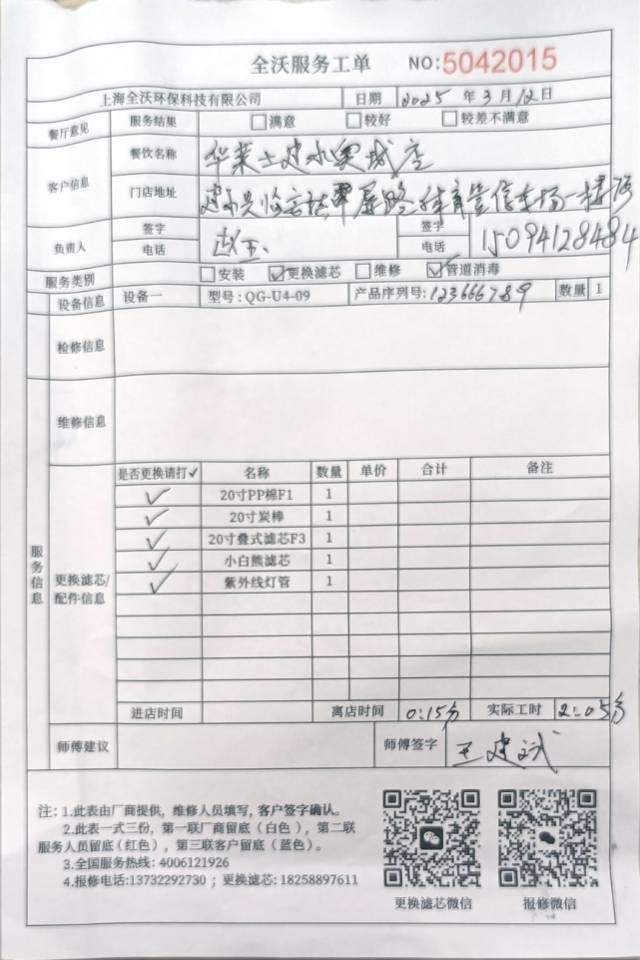 全沃服务工单 NO:5042015
上海全沃环保科技有限公司 日期 2025 年 3 月 12 日
餐厅意见 服务结果 满意 较好 较差不满意
客户信息 餐饮名称 华莱士建水 城店
门店地址 建水县临安镇 路 一楼
负责人 签字 签字
电话 赵玉 电话 15094128484
服务类别 安装 ✓更换滤芯 维修 ✓管道消毒
设备信息 设备一 型号：QG-U4-09 产品序列号: 123666789 数量 1
检修信息
维修信息
服务信息
更换滤芯/配件信息
是否更换请打✓ 名称 数量 单价 合计 备注
✓ 20寸PP棉F1 1
✓ 20寸炭棒 1
✓ 20寸叠式滤芯F3 1
✓ 小白熊滤芯 1
✓ 紫外线灯管 1
进店时间 离店时间 0:15分 实际工时 2:05分
师傅建议 师傅签字 王建斌
注：1.此表由厂商提供，维修人员填写，客户签字确认。
2.此表一式三份，第一联厂商留底（白色），第二联
服务人员留底(红色），第三联客户留底（蓝色）。
3.全国服务热线: 4006121926
4.报修电话:13732292730 ；更换滤芯: 18258897611
更换滤芯微信 报修微信